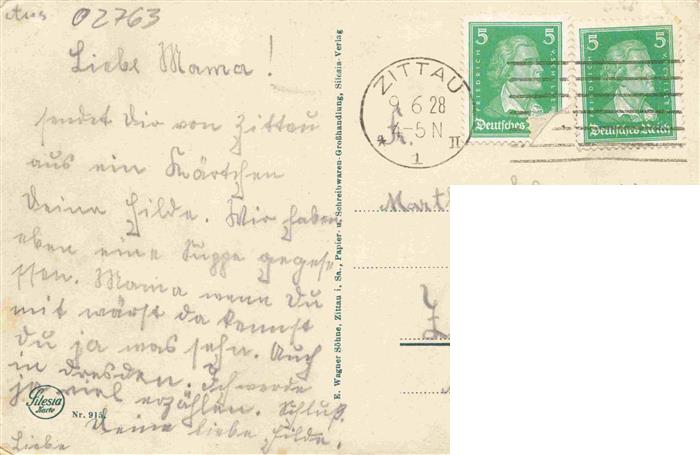 Aus 02763
Liebe Mama!
sendet Dir von Zittau
aus ein Kärtchen
Deine Hilde. Wir haben
eben eine Suppe gegese
ssen. Mama wenn Du
mit wärst da kennst
Du ja was sehn. Auch
in Dresden. Ich werde
ja viel erzählen. Schluß.
Deine liebe Hilde.
Liebe
Silesia
Karte
Nr. 915.
E. Wagner Söhne, Zittau i. Sa., Papier- u. Schreibwaren-Großhandlung, Silesia-Verlag
ZITTAU
9 6 28
4-5 N
* II
1
5 5
FRIEDRICH
Deutsches
5 5
FRIEDRICH V. SCHILLER
Deutsches Reich
Mart